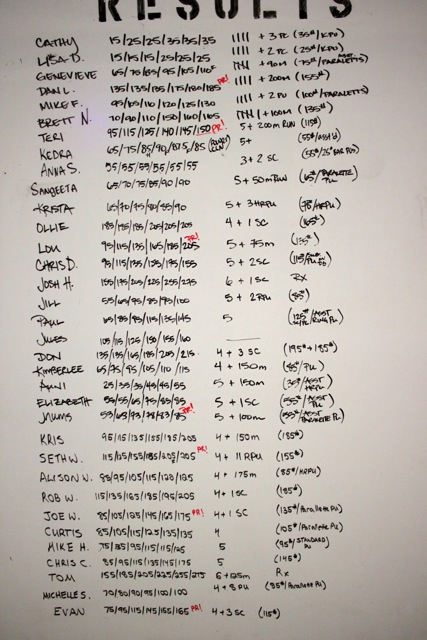 RESULTS
CATHY 15/25/25/35/35/35 |||| + 3 PC (35#/KPU)
LISA D. 15/15/15/25/25/25 |||| + 2 PC (25#/KPU)
GENEVIEVE 65/75/85/95/105/110 + 90M (75#/PARALETTS)
DAN L. 135/135/185/175/180/185 PR! |||| + 200M (155#)
MIKE F. 95/65/110/120/125/130 |||| + 2 PU (100#/PARALETTS)
BRETT N. 70/90/110/150/160/165 + 100M (135#)
TERI 95/115/125/140/145/150 PR! 5 + 200M RUN (115#)
KEDRA 65/75/85/90/87.5/85 5+
ANNA S. 55/55/55/55/55/55 3 + 2 SC
SANGEETA 65/70/75/85/90/90 5 + 50M RUN
KRISTA 65/70/75/80/85/90 5 + 3 HRPU (75#/HRPU)
OLLIE 185/185/185/205/205/205 4 + 1 SC (165#)
LOU 95/115/135/165/185/205 PR! 5 + 75M (135#)
CHRIS D. 95/115/135/135/175/155 5 + 2SC
JOSH H. 155/175/205/225/255/275 6 + 1 SC Rx
JILL 55/65/75/85/95/100 5 + 2RPU (55#)
PAUL 65/85/95/115/135/145 5
JULES 105/115/125/150/155/160
DON 135/155/165/185/205/215 4 + 3 SC (195# + 185#)
KIMBERLEE 65/75/95/105/110/115 4 + 150M
25/35/35/45/45/55 5 + 150M
ELIZABETH 55/55/65/75/85/85 5 + 1SC
MUMS 53/63/73/78/83/85 PR! 5 + 100M
KRIS 95/115/135/155/185/205 4 + 150M (185#)
SETH W. 115/135/155/185/205/205 PR! 4 + 11 RPU (155#)
ALISON W. 85/95/105/115/120/125 4 + 175M (85#/HRPU)
ROB W. 115/135/165/185/195/205 4 + 1SC (185#)
JOE W. 85/105/125/145/165/175 PR! 4 + 1 SC (135#/Parallette PU)
CURTIS 85/105/115/125/135/135 4 (105#/Parallette PU)
MIKE H. 75/85/95/115/115/125 5 (95#/STANDARD PU)
CHRIS C. 85/95/115/135/145/175 5 (145#)
TOM 155/185/205/225/255/275 6 + 125M Rx
MICHELLE S. 70/80/90/95/100/100 4 + 8 PU (85#/Parallette PU)
EVAN 75/95/115/145/155/165 PR! 4 + 3 SC (115#)